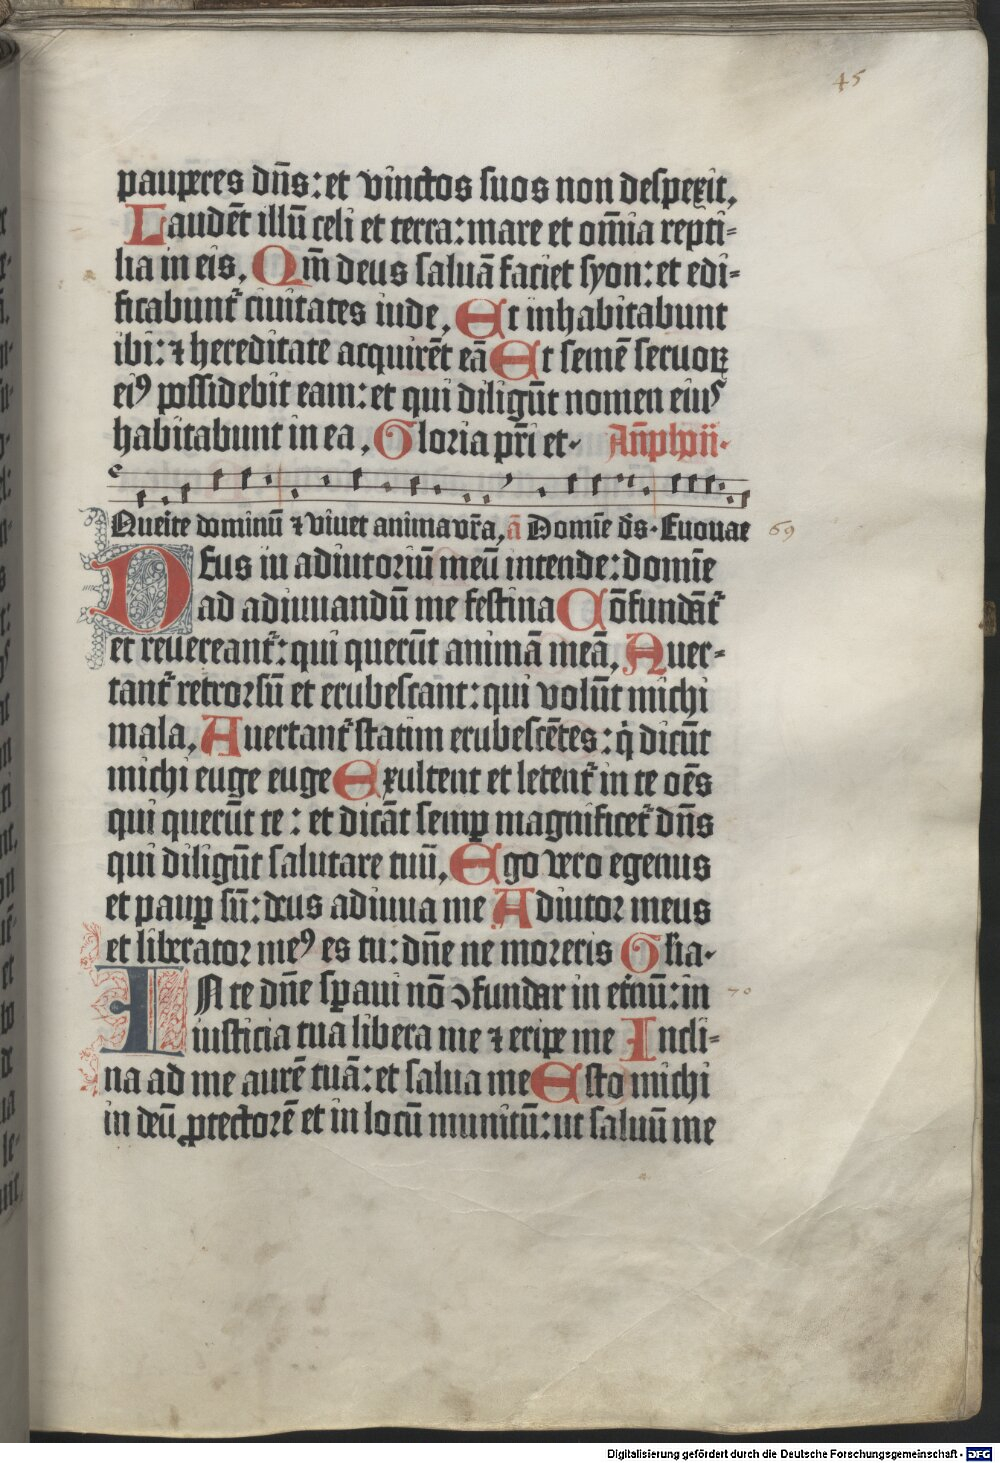 45
pauperes dn̄s: et vinctos suos non despexit,
Laudēt illū celi et terra: mare et om̄ia repti-
lia in eis, Qm̄ deus saluā faciet syon: et edi-
ficabunt᷑ ciuitates iude, Et inhabitabunt
ibi: ⁊ hereditate acquirēt eā Et semē seruoꝝ
eiꝰ possidebit eam: et qui diligūt nomen eiuꝰ
habitabunt in ea, Gloria pr̄i et· An̄ plp̄ii·
Querite dominū ⁊ viuet anima vr̄a, ā Domīe d̄s· Euouae
69
DEus in adiutoriū meū intende: domīe
ad adiuuandū me festina Cōfundāt᷑
et reuereant᷑: qui querūt animā meā, Auer-
tant᷑ retrorsū et erubescant: qui volūt michi
mala, Auertant᷑ statim erubescētes: qi̇ dicūt
michi euge euge Exultent et letent᷑ in te oēs
qui querūt te: et dicāt semꝑ magnificet᷑ dn̄s
qui diligūt salutare tuū, Ego vero egenus
et pauꝑ sū: deus adiuua me Adiutor meus
et liberator meꝰ es tu: dn̄e ne moreris Gl̄ia·
IN te dn̄e sp̄aui nō ↄfundar in et̄nū: in
70
iusticia tua libera me ⁊ eripe me Incli-
na ad me aurē tuā: et salua me Esto michi
in deū ꝓtectorē et in locū munitū: ut saluū me
Digitalisierung gefördert durch die Deutsche Forschungsgemeinschaft - DFG